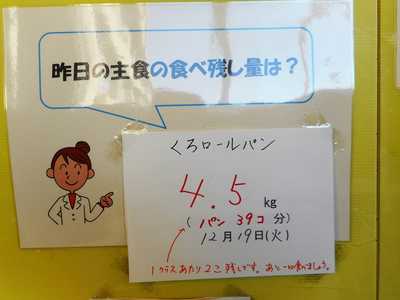 昨日の主食の食べ残し量は？
くろロールパン
4.5 kg
(パン 39コ 分)
12月19日(火)
1クラスあたり2コ残しです。あと一口食べましょう。